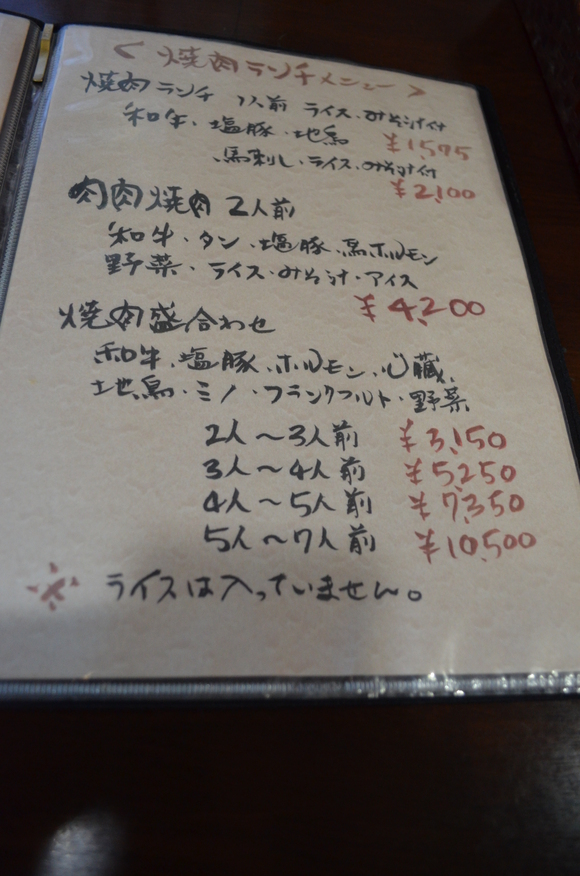 < 焼肉ランチメニュー >
焼肉ランチ 1人前 ライス・みそ汁付
和牛・塩豚・地鳥 ¥1,575
馬刺し・ライス・みそ汁付
¥2,100
肉肉焼肉 2人前
和牛・タン・塩豚・鳥ホルモン
野菜・ライス・みそ汁・アイス
¥4,200
焼肉盛合わせ
和牛、塩豚、ホルモン、心臓、
地鳥・ミノ・フランクフルト・野菜
2人〜3人前 ¥3,150
3人〜4人前 ¥5,250
4人〜5人前 ¥7,350
5人〜7人前 ¥10,500
※ ライスは入っていません。